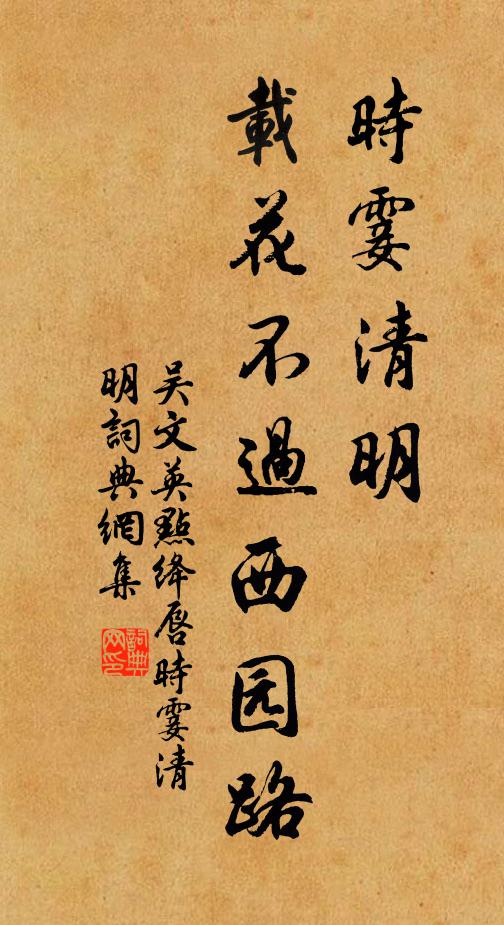 時霎清明
載花不過西园路
吴文英點绛唇時霎清
明詞典網集
詞典
网印